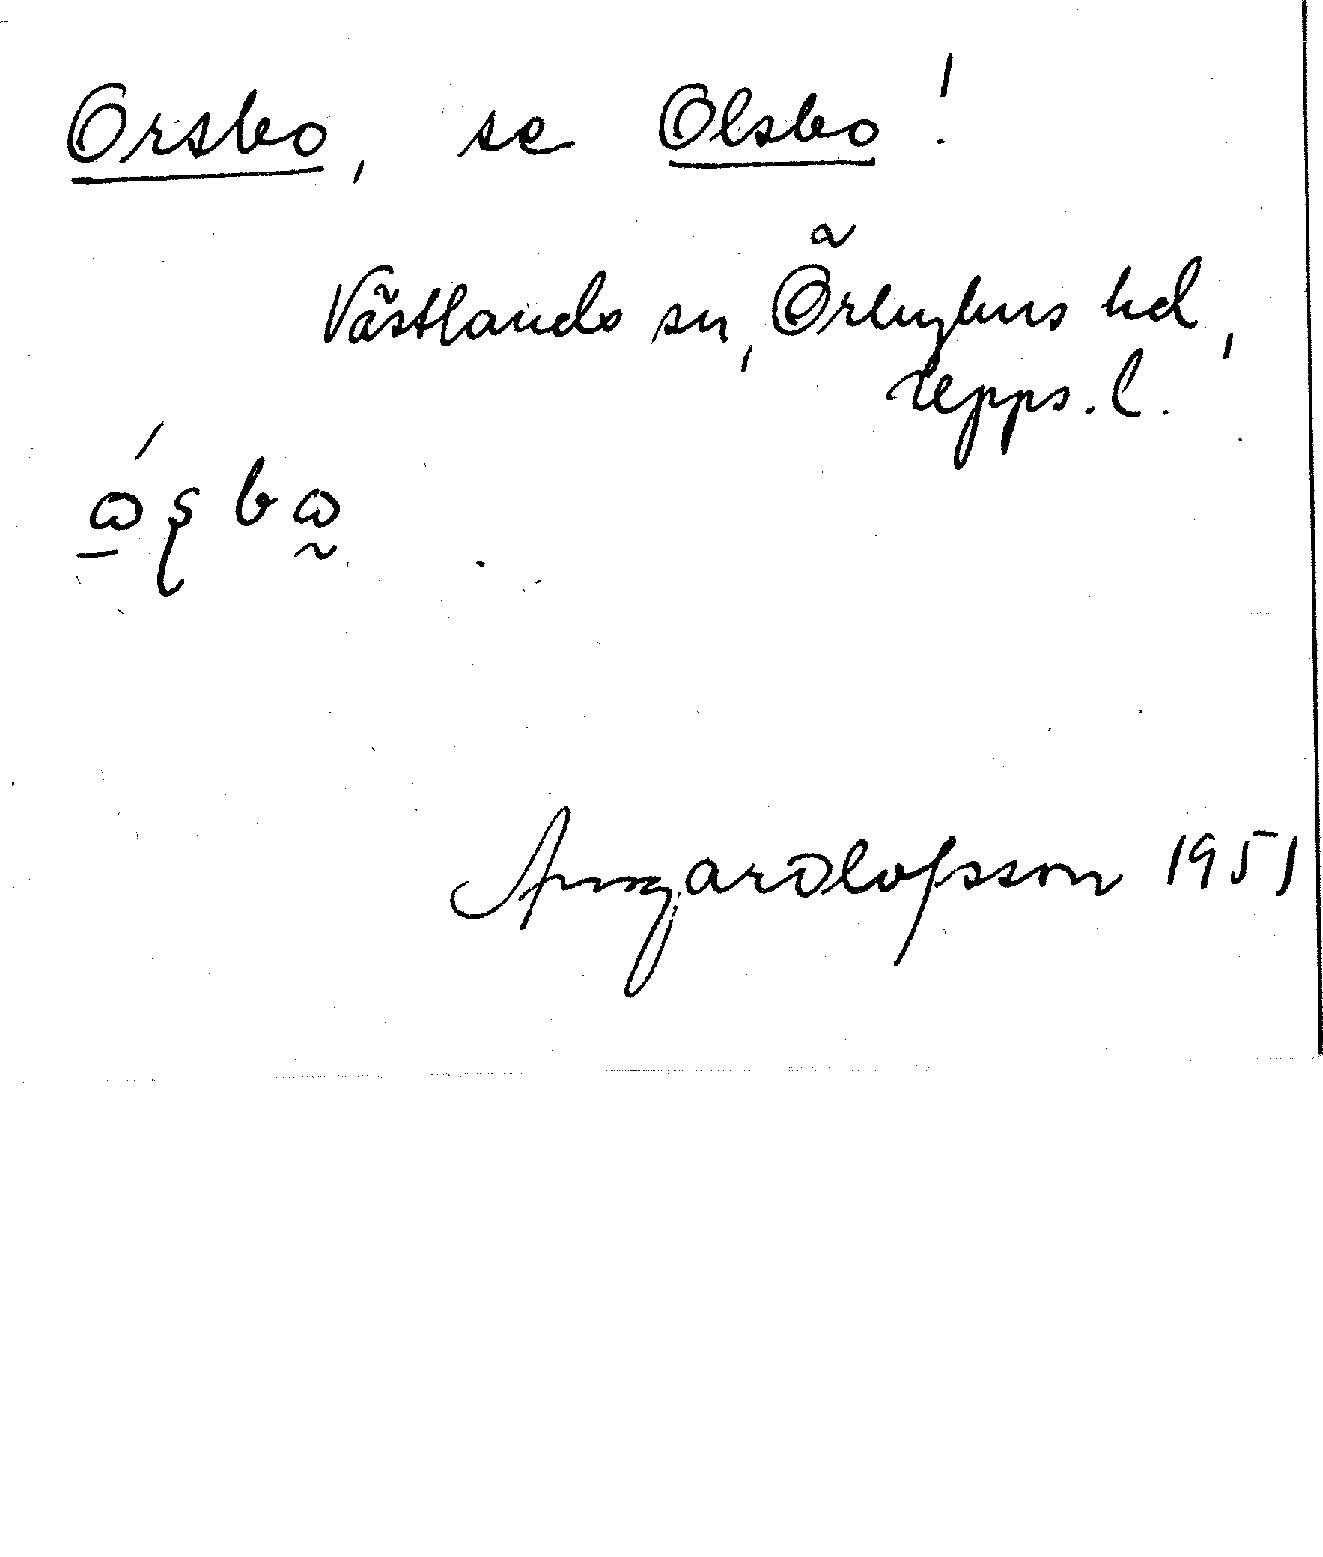 Orsbo, se Olsbo!
Västlands sn, Örbyhus hd,
Upps. l.
Olofsson 1951